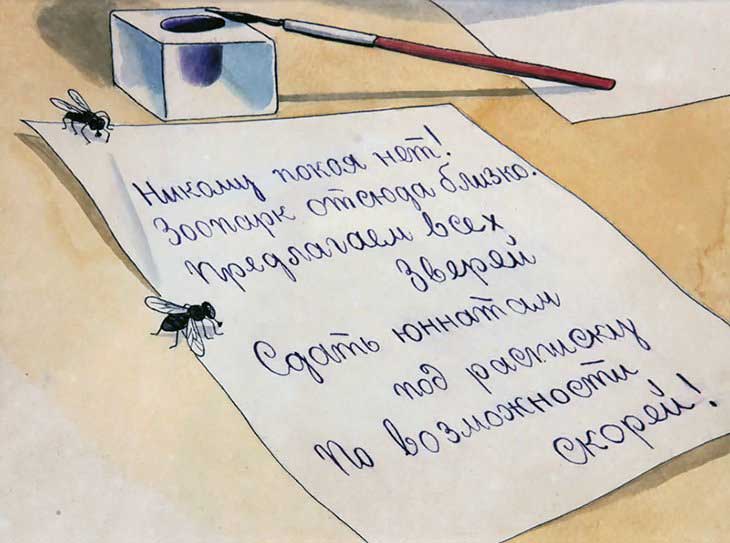 Никому покоя нет!
Зоопарк отсюда близко.
Предлагаем всех
зверей
Сдать юннатам
под расписку
По возможности
скорей!